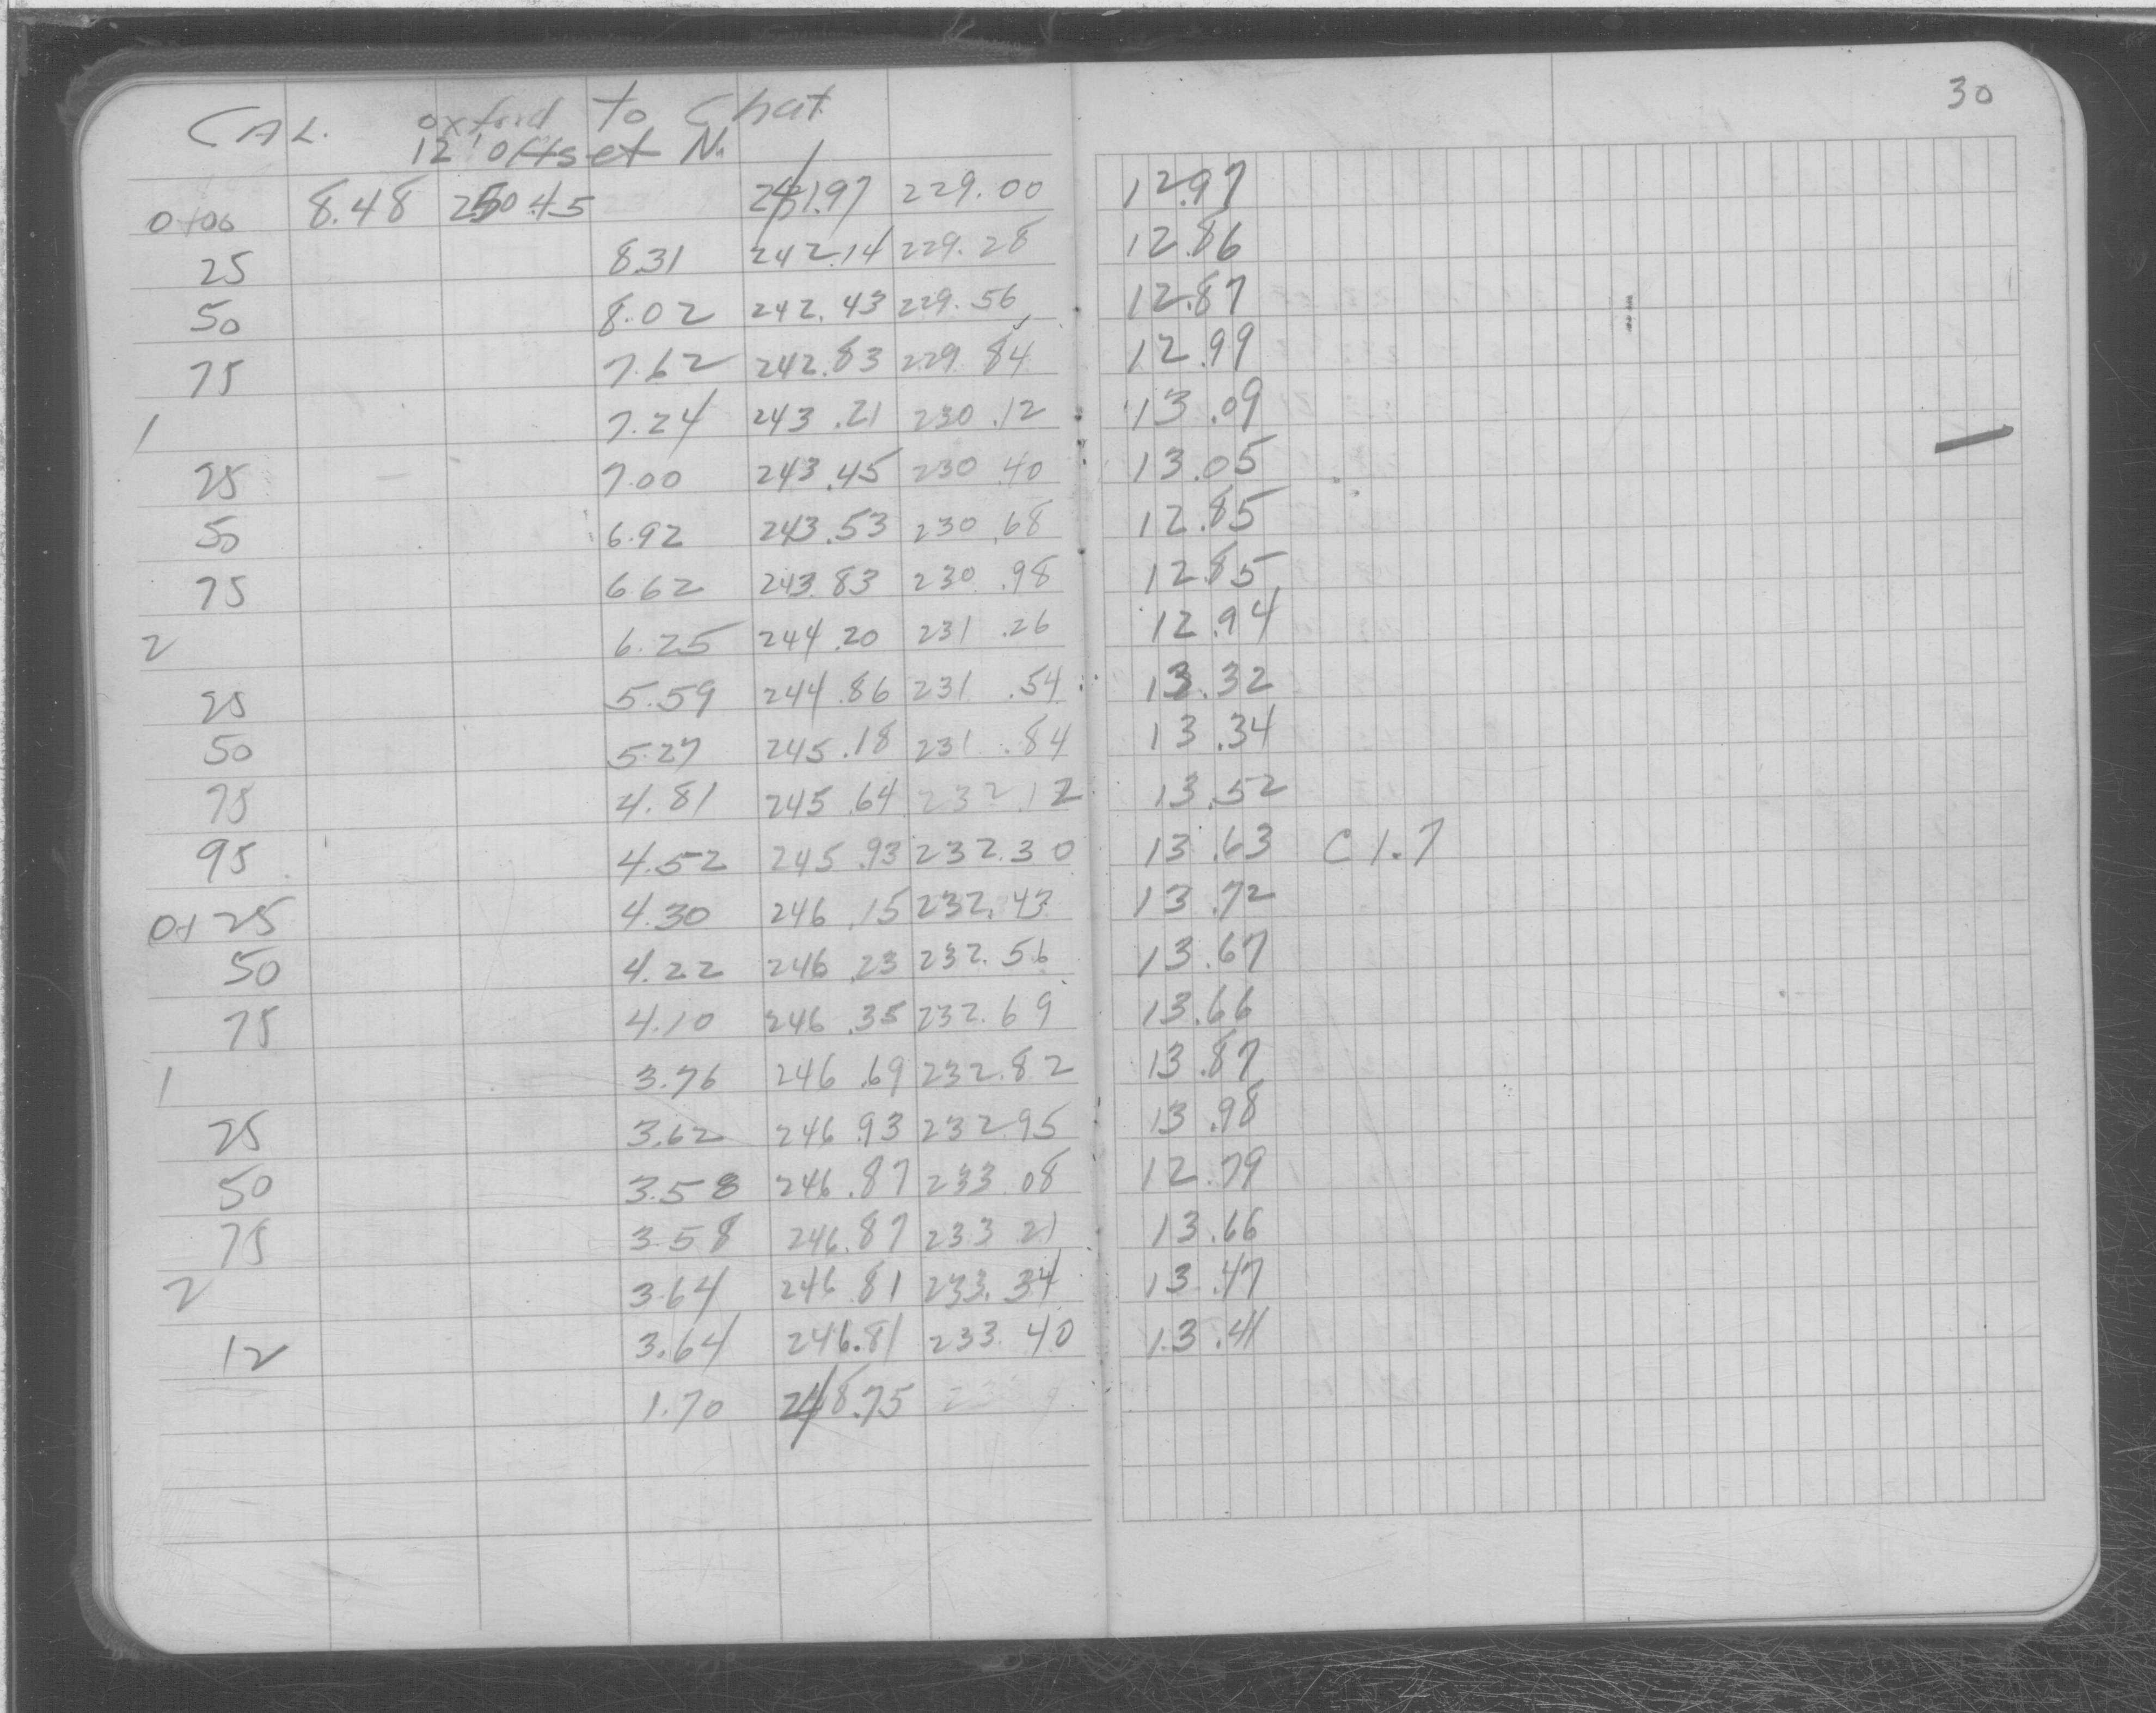 30
CAL. oxford to Chat.
12' offset N.
0+00 8.48 250.45 241.97 229.00 12.97
25 8.31 242.14 229.28 12.86
50 8.02 242.43 229.56 12.87
75 7.62 242.83 229.84 12.99
1 7.24 243.21 230.12 13.09
25 7.00 243.45 230.40 13.05
50 6.92 243.53 230.68 12.85
75 6.62 243.83 230.98 12.85
2 6.25 244.20 231.26 12.94
25 5.59 244.86 231.54 13.32
50 5.27 245.18 231.84 13.34
75 4.81 245.64 232.12 13.52
95 4.52 245.93 232.30 13.63 C 1.7
0+25 4.30 246.15 232.43 13.72
50 4.22 246.23 232.56 13.67
75 4.10 246.35 232.69 13.66
1 3.76 246.69 232.82 13.87
25 3.62 246.93 232.95 13.98
50 3.58 246.87 233.08 12.79
75 3.58 246.87 233.21 13.66
2 3.64 246.81 233.34 13.47
12 3.64 246.81 233.40 13.41
1.70 248.75